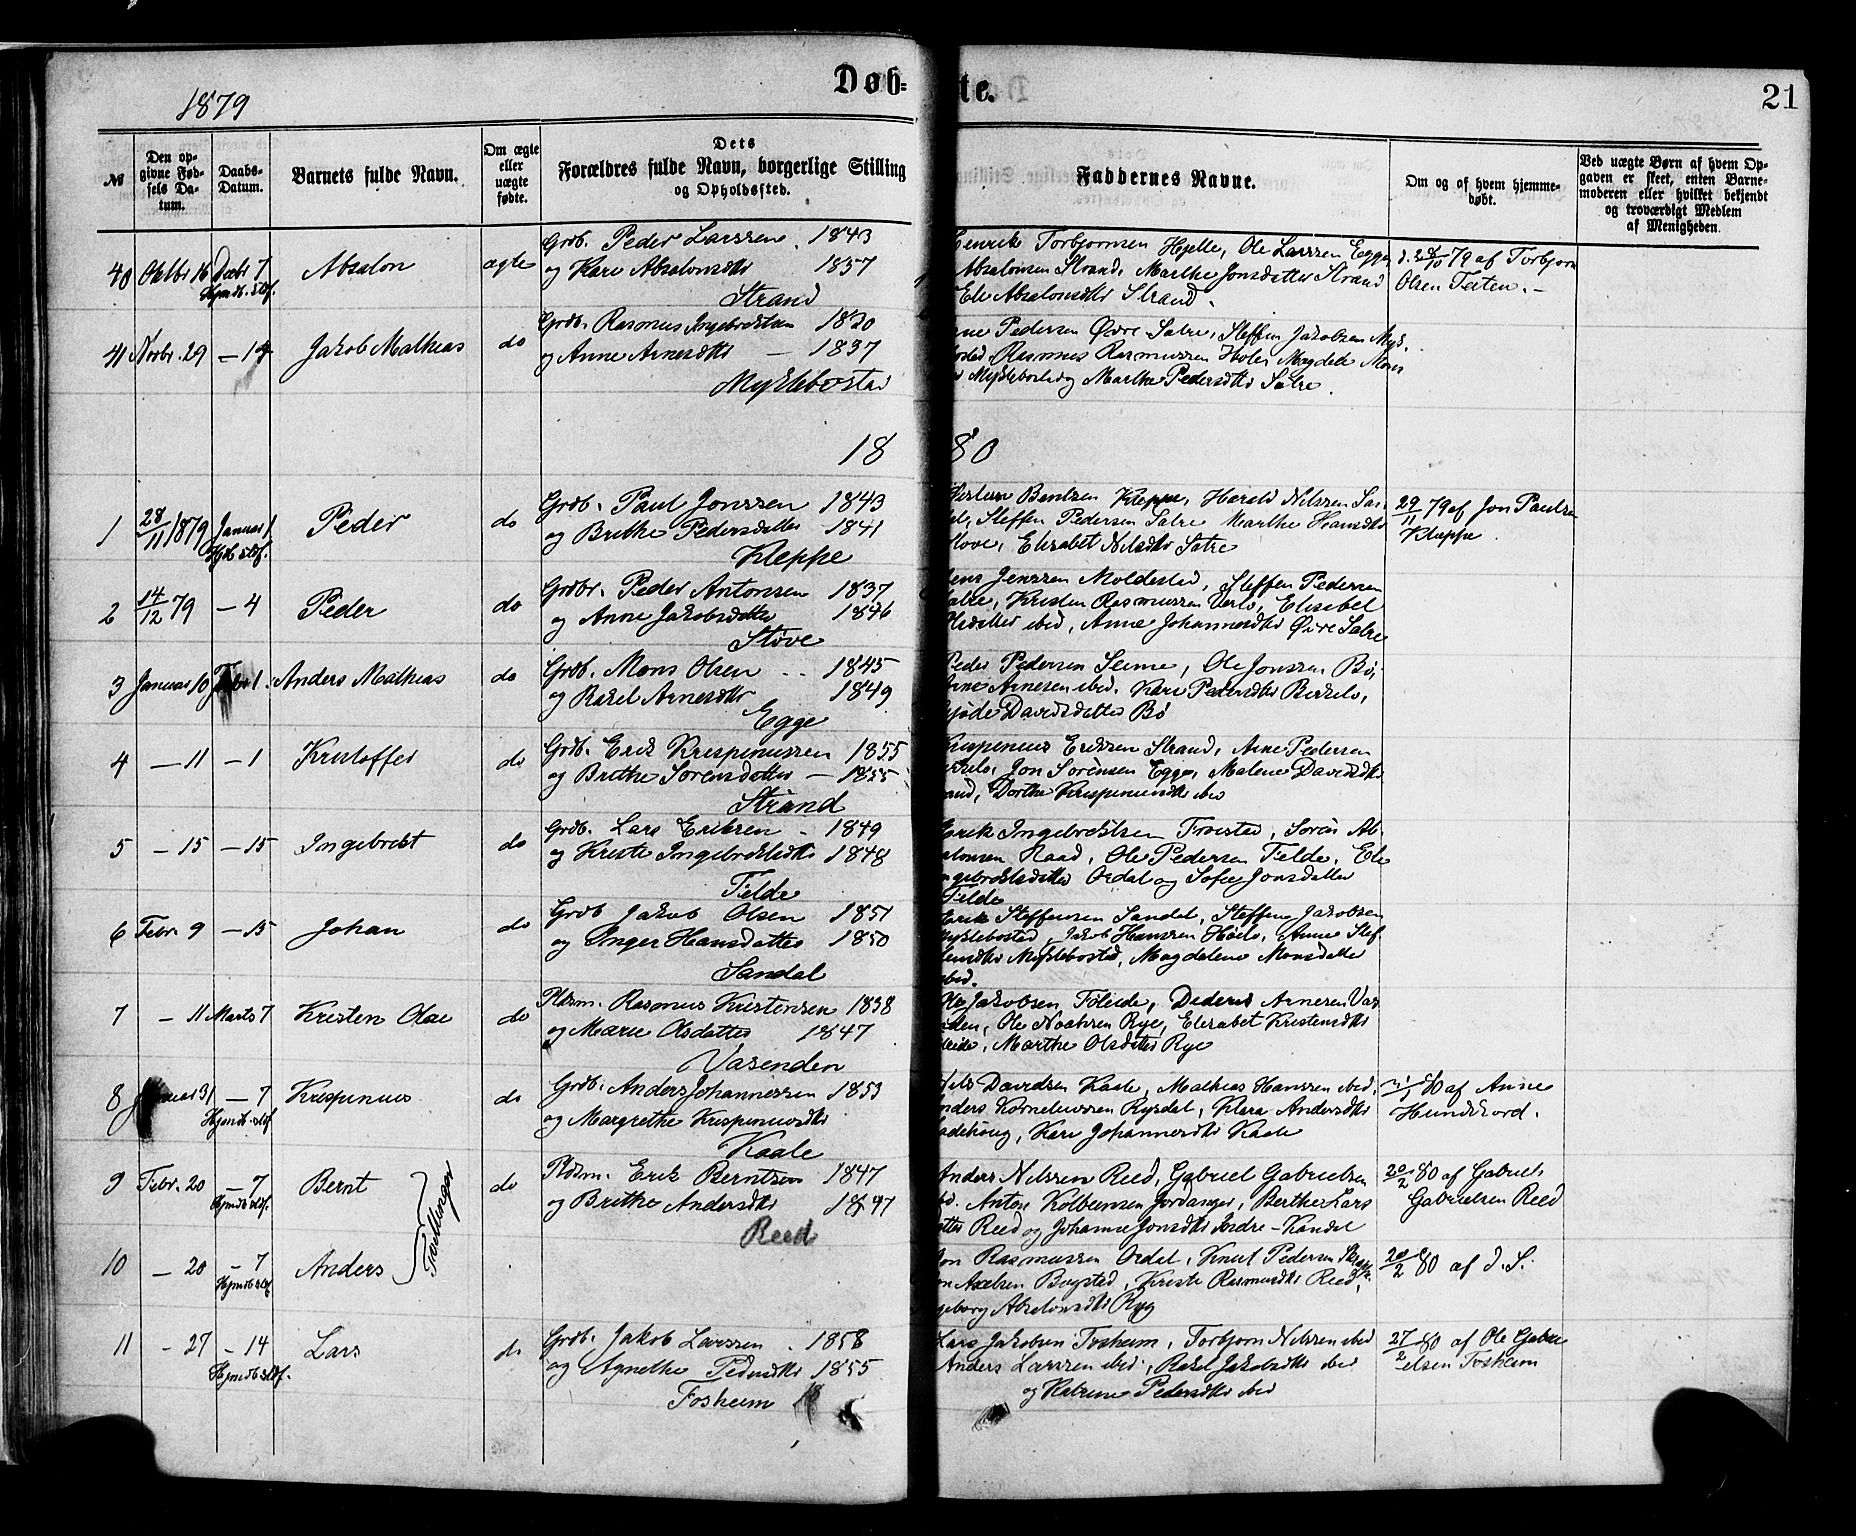 1879
Døb- te.
21
№
Den op-
givne Fød-
sels Da-
tum.
Daabs-
Datum.
Barnets fulde Navn.
Om ægte
eller
uægte
fødte.
Dets
Forældres fulde Navn, borgerlige Stilling
og Opholdssted.
Faddernes Navne.
Om og af hvem hjemme-
døbt.
Ved uægte Børn af hvem Op-
gaven er skeet, enten Barne-
moderen eller hvilket bekjendt
og troværdigt Medlem
af Menigheden.
40 Oktbr 16 Decbr 7 Absalon ægte Grdb. Peder Larssen 1843
Hjmdb. stdf. og Kari Absalonsdtr 1837
Strand
Henrik Torbjørnsen Hjelle, Ole Larssen Egge,
Absalonsen Strand, Marthe Jonsdatter Strand
Eli Absalonsdtr Strand.
79 af Torbjørn
Olsen Teiten.
41 Novbr. 29 — 14 Jakob Mathias do Grdb. Rasmus Ingebretsen 1830
og Anne Arnesdtr — 1837
Myklebostad
Pedersen Øvre Sætre, Steffen Jakobsen Myk-
Rasmus Rasmussen Hole, Magdele Mons
Myklebostad og Marthe Pedersdtr Sætre.
18 80
1 28/11 1879 Januar 1 Peder do Grdb. Paul Jonssen 1843
Hjdb. stdf. og Brithe Pedersdatter 1841
Kleppe
Bentsen Kleppe, Harald Nilssen San-
Steffen Pedersen Sætre Marthe Hansdtr
Støve, Elisabet Nilsdtr Sætre
29/11 79 af Jon Paulsen
Kleppe.
2 14/12 79 — 4 Peder do Grdbr. Peder Antonsen 1837
og Anne Jakobsdatter 1846
Støve
Jens Jenssen Moldestad, Steffen Pedersen
Sætre, Kristen Rasmussen Verlo, Elisabet
Olsdatter ibid, Anne Johannesdtr Øvre Sætre
3 Januar 10 Febr 1. Anders Mathias do Grdb. Mons Olsen 1845
og Rakel Arnesdtr 1849
Egge
Peder Pedersen Seime, Ole Jonssen Bø,
Arne Arnesen ibid. Kari Pedersdtr Birkelo,
Davidsdatter Bø
4 — 11 — 1 Kristoffer do Grdb. Erik Krispinussen 1855
og Brithe Sørensdatter — 1855
Strand
Krispinus Erikssen Strand, Arne Pedersen
Jon Sørensen Egge, Malene Davidsdtr
Dorthe Krispinusdtr ibid
5 — 15 — 15 Ingebrikt do Grdb. Lars Eriksen 1849
og Kristi Ingebriktsdtr 1848
Felde
Erik Ingebriktsen Frøistad, Søren Ab-
salonsen Raad, Ole Pedersen Felde, Eli
Ingebriktsdatter Ordal og Sofie Jonsdatter
Felde
6 Febr. 9 — 15 Johan do Grdb Jakob Olsen 1851
og Inger Hansdatter 1850
Sandal
Erik Steffensen Sandal, Steffen Jakobsen
Myklebostad, Jakob Hanssen Høilo, Anne Stef-
fensdtr Myklebostad, Magdalene Monsdatter
ibid.
7 — 11 Marts 7 Kristen Olai do Pldsm. Rasmus Kristensen 1838
og Marie Olsdatter 1847
Vasenden
Ole Jakobsen Føleide, Diderik Arnesen Vas-
enden, Ole Noahsen Rye, Elisabet Kristensdtr
Marthe Olsdatter Rye
8 Januar 31 — 7 Krispinus do Grdb. Anders Johannessen 1853
Hjmdb. stdf og Margrethe Krispinusdtr
Kaale
Nils Davidsen Kaale, Mathias Hanssen ibid.
Anders Korneliussen Rysdal, Klara Andersdtr
Kari Johannesdtr Kaale
80 af Anne
Hundskord.
9 Febr. 20 — 7 Bernt do Pldsm. Erik Berntsen 1847
Hjmdb stdf. og Brithe Andersdtr 1847
Reed
Tvillinger
Anders Nilssen Reed, Gabriel Gabrielsen
Anton Kolbeinsen Jordanger, Berthe Lars
datter Reed og Johanne Jonsdtr Indre-Kandal
20/2 80 af Gabriel
Gabrielsen Reed
10 — 20 — 7 Anders
Hjmdb stdf
Jon Rasmussen Ordal, Knut Pedersen
Axelsen Bogstad, Kristi Rasmusdtr Reed,
Ingeborg Absalonsdtr Ryg
20/2 80 af d. S.
11 — 27 — 14 Lars do Grdb. Jakob Larssen 1858
Hjmdb stdf. og Agnethe Pedersdtr 1855
Fosheim
Lars Jakobsen Fosheim, Torbjørn Nilssen ibid
Anders Larssen ibid, Rakel Jakobsdtr ibid
og Katrine Pedersdtr ibid
27/2 80 af Ole Gabri-
elsen Fosheim